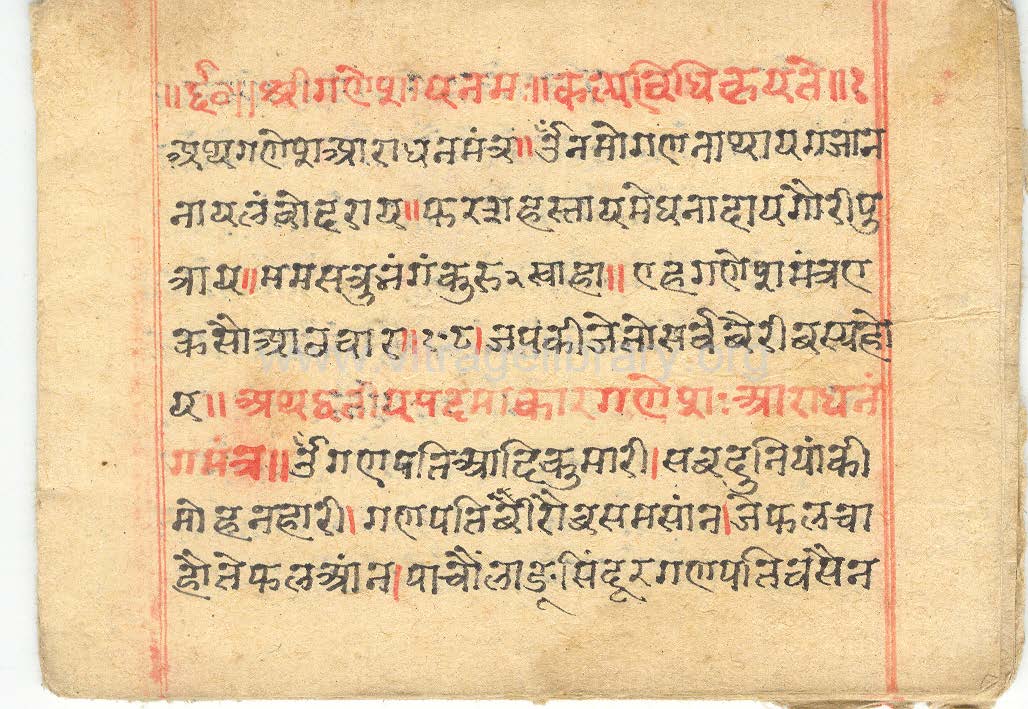 ॥ र्द० ॥ श्रीगणेशायनमः ॥ कल्पविधिकथ्यते ॥ १
अथगणेशआराधनमंत्र ॥ ॐनमोगणनाथायगजान
नायलंबोदराय ॥ फरशहस्तायमेघनादायगौरीपु
त्राय ॥ ममसत्रुनंगंकुरु२स्वाहा ॥ एहगणेशमंत्रए
कसोआठवार ॥ १०८ । जपकीजेतोसर्ववैरीवस्यहो
य ॥ अथद्वतीयपदमाकारगणेशःआराधनं
गमंत्र ॥ ॐगणपतिआदिकुमारी । सबदुनियांकी
मोहनहारी । गणपति समसांन । जेफलचा
होतेफलआंन । पाचौंलाडूसिंदूरगणपतिवसैन
www.vitragelibrary.org